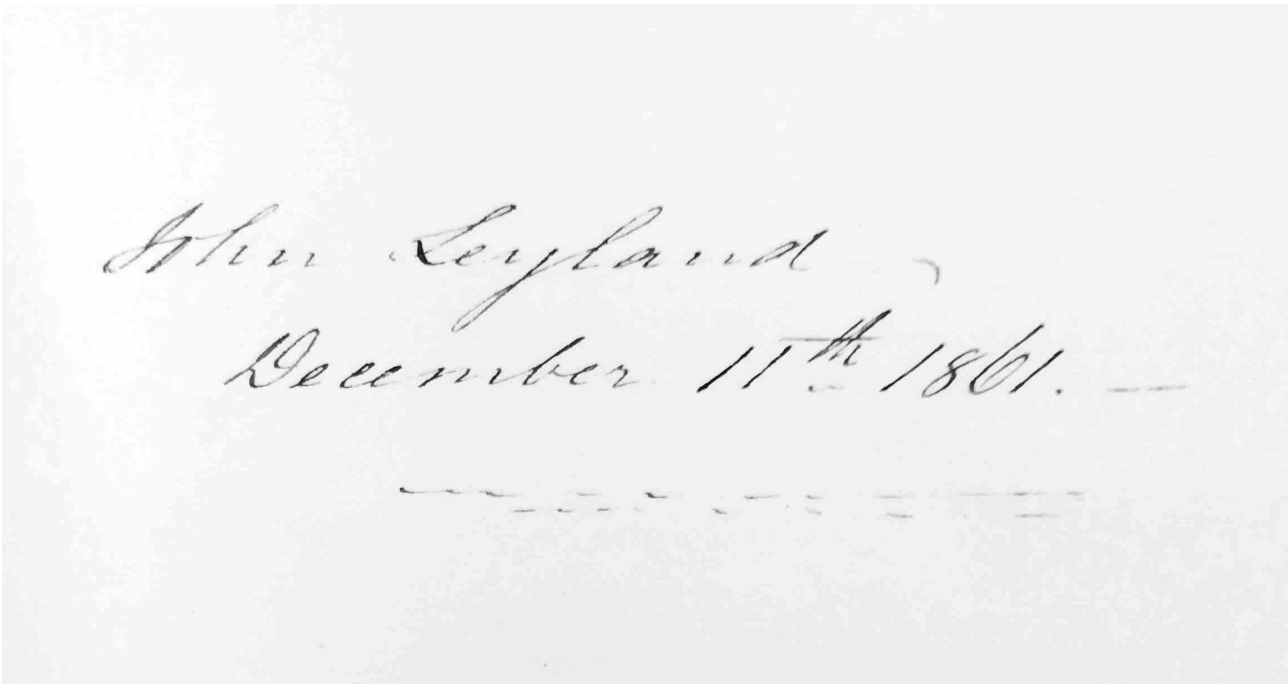 John Leyland,
December 11th 1861. —